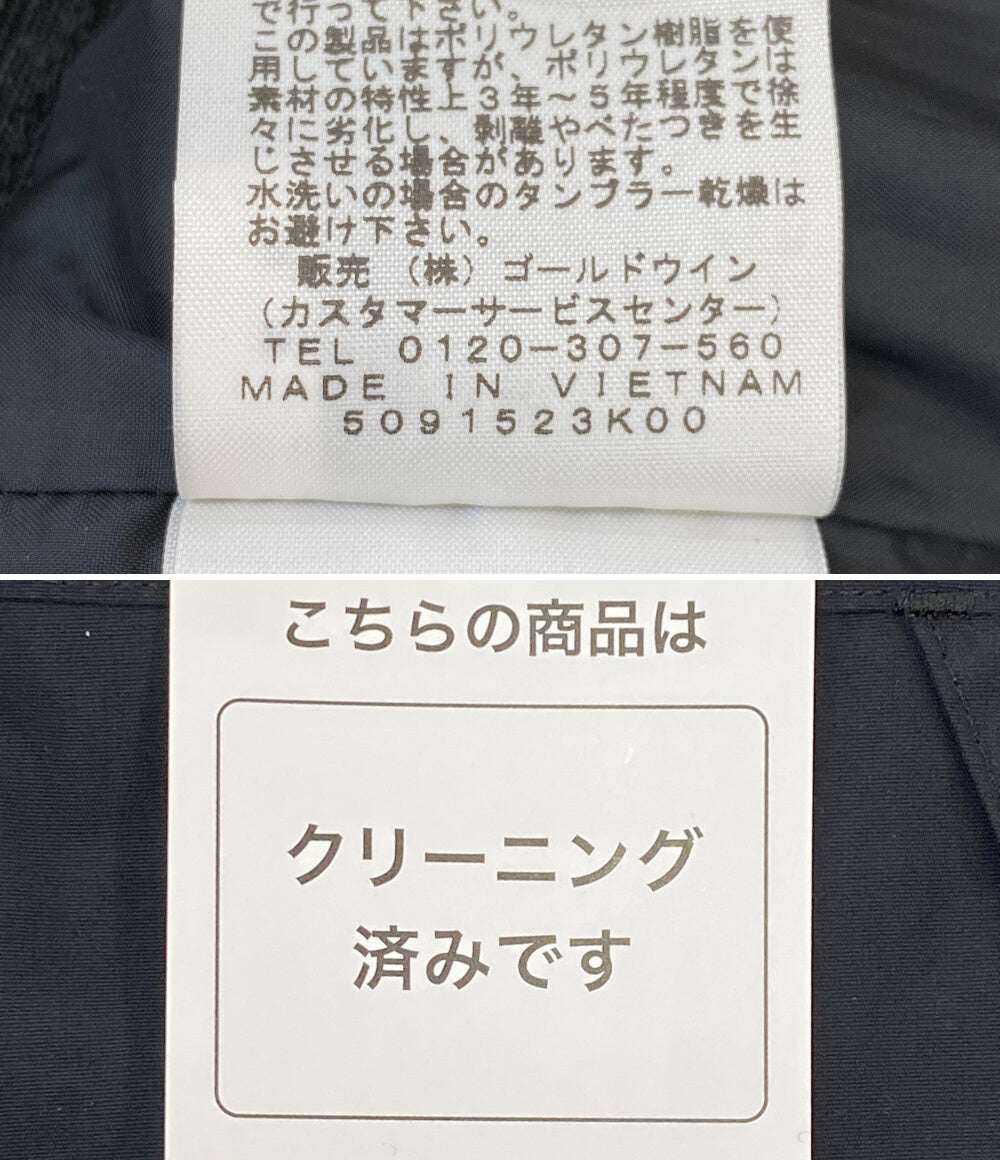 で行って下さい。
この製品はポリウレタン樹脂を使
用していますが、ポリウレタンは
素材の特性上3年～5年程度で徐
々に劣化し、剥離やべたつきを生
じさせる場合があります。
水洗いの場合のタンブラー乾燥は
お避け下さい。
販売 (株) ゴールドウイン
(カスタマーサービスセンター)
TEL 0120-307-560
MADE IN VIETNAM
5091523K00
こちらの商品は
クリーニング
済みです